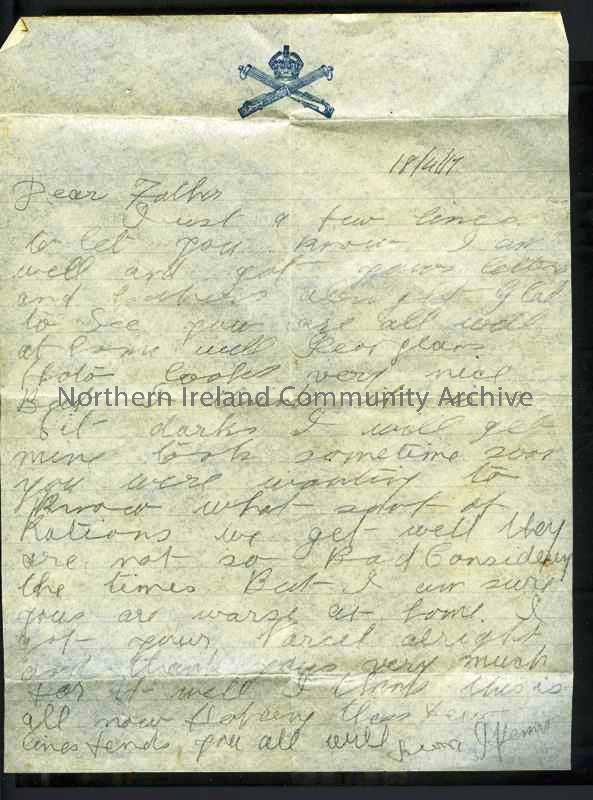 18/4/17
Dear Father
Just a few lines
to let you know I am
well and got yours letter
and alright glad
to see you are all well
at home well
Foto looks very nice
But
Northern Ireland Community Archive
bit dark I will get
mine took sometime soon
you were wanting to
know what sort of
Rations we get well they
are not so Bad Considering
the times But I am sure
yous are worse at home I
got your Parcel alright
and thank yous very much
for it well I think this is
all now Hopeing these few
lines finds you all well from